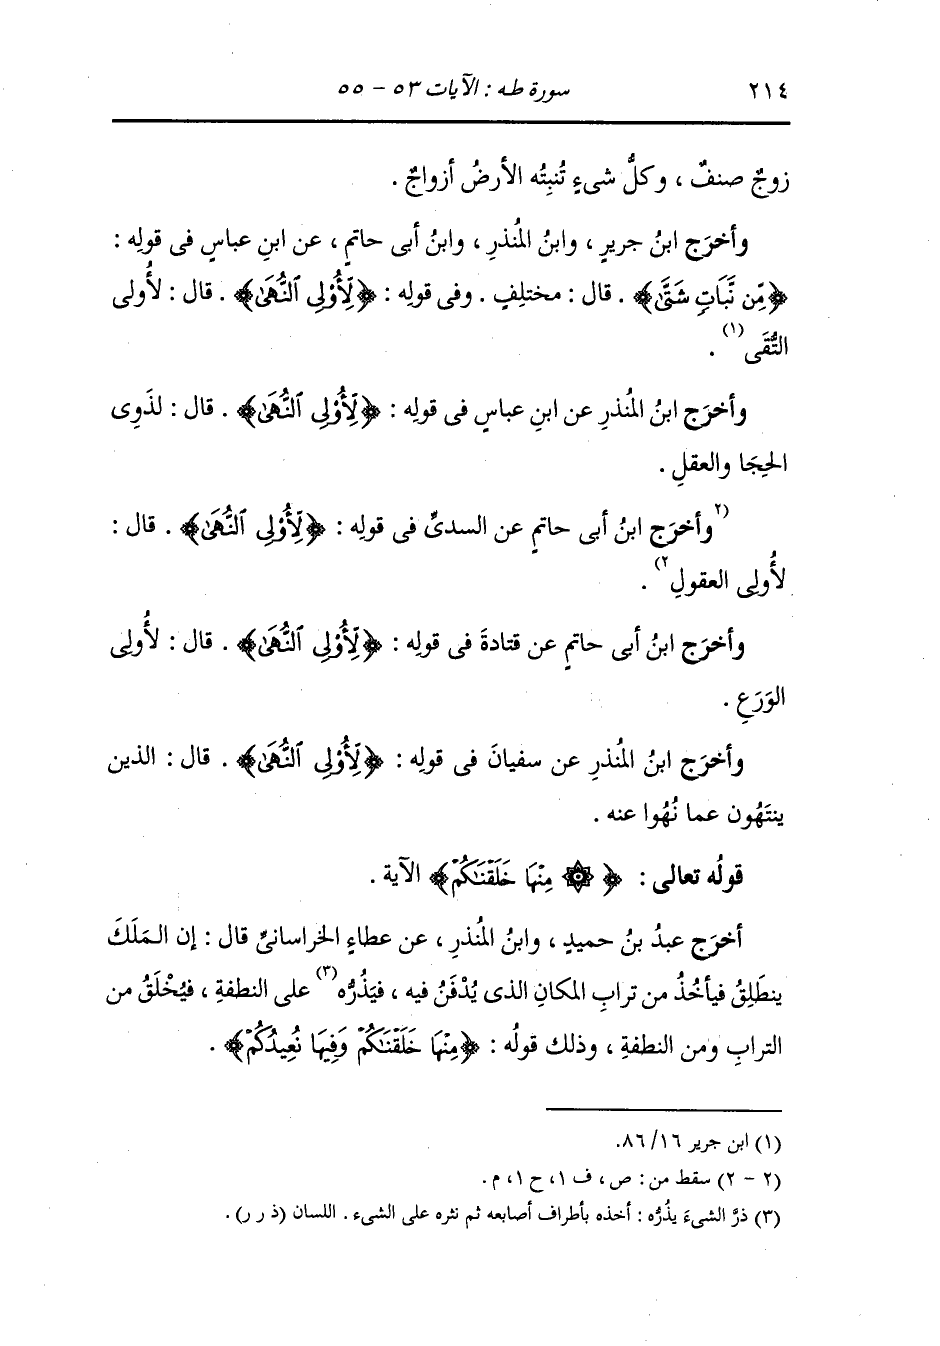 ٢١٤
سورة طه : الآيات ٥٣ - ٥٥
زوجٌ صنفٌ ، وكلُّ شىءٍ تُنبِتُه الأرضُ أزواجٌ .
وأخرَج ابنُ جريرٍ ، وابنُ المُنذرِ ، وابنُ أبى حاتمٍ ، عن ابنِ عباسٍ فى قولِه :
﴿مِّن نَّبَاتٍ شَتَّىٰ﴾ . قال : مختلِفٍ . وفى قولِه : ﴿لِّأُوْلِى ٱلنُّهَىٰ﴾ . قال : لأُولى
التُّقَى(١) .
وأخرَج ابنُ المُنذرِ عن ابنِ عباسٍ فى قولِه : ﴿لِّأُوْلِى ٱلنُّهَىٰ﴾ . قال : لذَوِى
الحِجَا والعقلِ .
(٢وأخرَج ابنُ أبى حاتمٍ عن السدىِّ فى قولِه : ﴿لِّأُوْلِى ٱلنُّهَىٰ﴾ . قال :
لأُولِى العقولِ٢) .
وأخرَج ابنُ أبى حاتمٍ عن قتادةَ فى قولِه : ﴿لِّأُوْلِى ٱلنُّهَىٰ﴾ . قال : لأُولِى
الوَرَعِ .
وأخرَج ابنُ المُنذرِ عن سفيانَ فى قولِه : ﴿لِّأُوْلِى ٱلنُّهَىٰ﴾ . قال : الذين
ينتَهُون عما نُهُوا عنه .
قولُه تعالى : ﴿ ۞ مِنْهَا خَلَقْنَٰكُمْ﴾ الآية .
أخرَج عبدُ بنُ حميدٍ ، وابنُ المُنذرِ ، عن عطاءٍ الخراسانىِّ قال : إن المَلَكَ
ينطَلِقُ فيأخُذُ من ترابِ المكانِ الذى يُدْفَنُ فيه ، فيَذُرُّه(٣) على النطفةِ ، فيُخْلَقُ من
الترابِ ومن النطفةِ ، وذلك قولُه : ﴿مِنْهَا خَلَقْنَٰكُمْ وَفِيهَا نُعِيدُكُمْ﴾ .
(١) ابن جرير ١٦/ ٨٦.
(٢ - ٢) سقط من : ص ، ف ١، ح ١، م .
(٣) ذرَّ الشىءَ يذُرُّه : أخذه بأطراف أصابعه ثم نثره على الشىء . اللسان (ذ ر ر) .